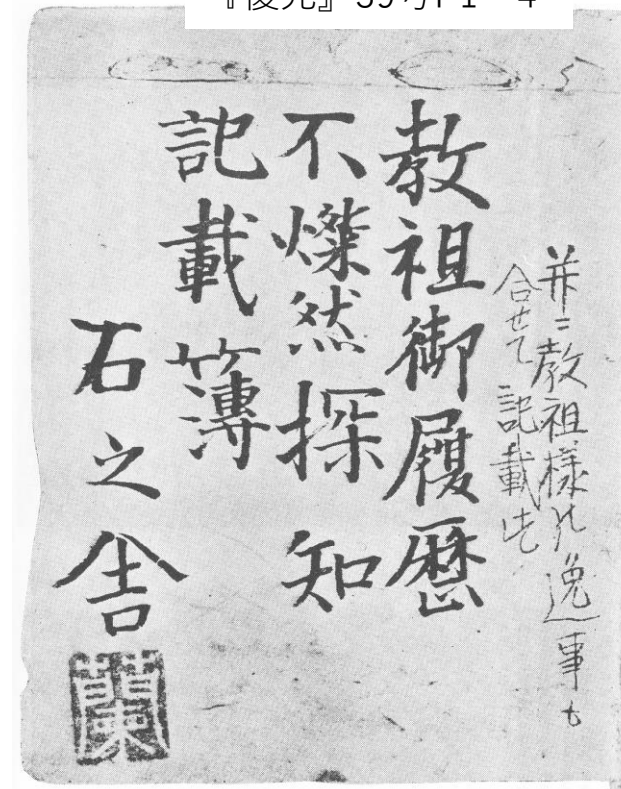 『復元』39号P1~4
並ニ教祖様ノ逸事も
合せて記載す
教祖御履歴
不燦然探知
記載簿
石之舎
蘭